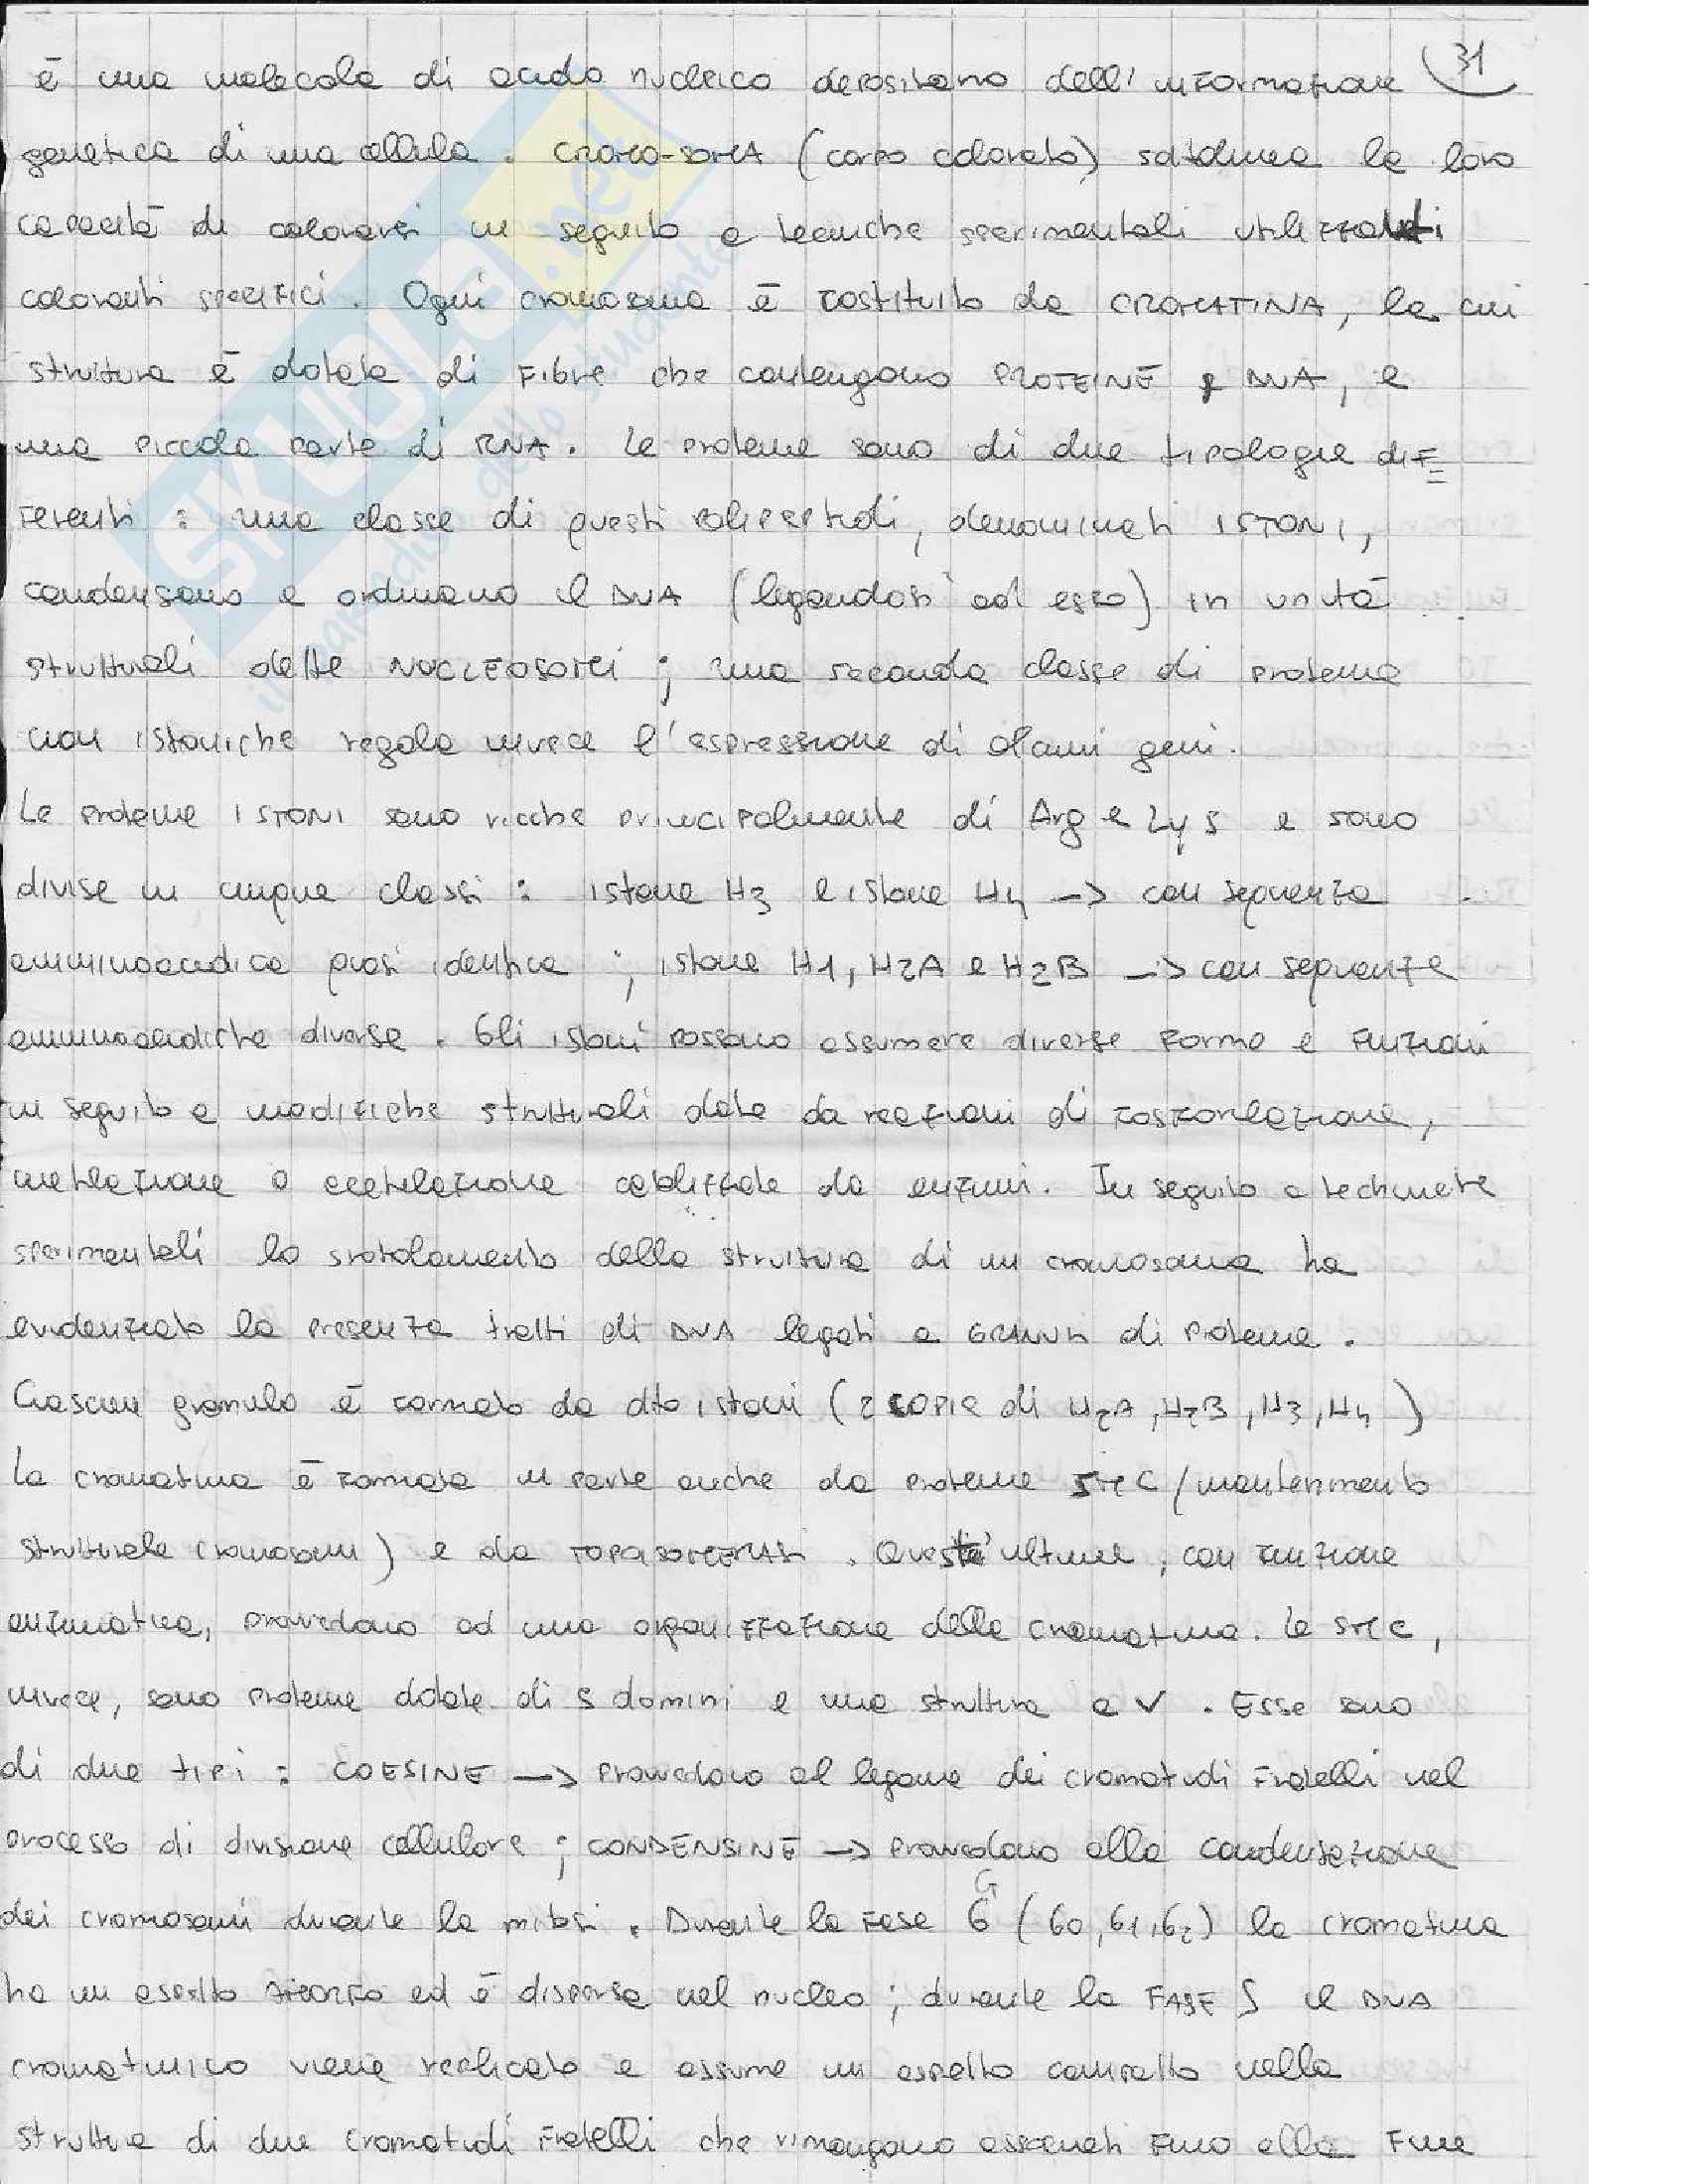 31
è una molecola di acido nucleico depositario dell'informazione
genetica di una cellula. CROMO-SOMA (corpo colorato) sottolinea la loro
capacità di colorarsi in seguito a tecniche sperimentali utilizzanti
coloranti specifici. Ogni cromosoma è costituito da CROMATINA, la cui
struttura è dotata di fibre che contengono PROTEINE e DNA, e
una piccola parte di RNA. Le proteine sono di due tipologie dif=
ferenti: una classe di questi polipeptidi, denominati ISTONI,
condensano e ordinano il DNA (legandosi ad esso) in unità
strutturali dette NUCLEOSOMI; una seconda classe di proteine
non istoniche regola invece l'espressione di alcuni geni.
Le proteine ISTONI sono ricche principalmente di Arg e Lys e sono
divise in cinque classi: istone H3 e istone H4 -> con sequenza
amminoacidica quasi identica; istone H1, H2A e H2B -> con sequenze
amminoacidiche diverse. Gli istoni possono assumere diverse forme e funzioni
in seguito a modifiche strutturali date da reazioni di fosforilazione,
metilazione o acetilazione catalizzate da enzimi. In seguito a tecniche
sperimentali lo srotolamento della struttura di un cromosoma ha
evidenziato la presenza tratti di DNA legati a GRANULI di proteine.
Ciascun granulo è formato da otto istoni (2 copie di H2A, H2B, H3, H4)
La cromatina è formata in parte anche da proteine SMC (mantenimento
strutturale cromosomi) e da TOPOISOMERASI. Queste ultime, con funzione
enzimatica, provvedono ad una organizzazione della cromatina. Le SMC,
invece, sono proteine dotate di 5 domini e una struttura a V. Esse sono
di due tipi: COESINE -> provvedono al legame dei cromatidi fratelli nel
processo di divisione cellulare; CONDENSINE -> provvedono alla condensazione
dei cromosomi durante la mitosi. Durante la fase G G (G0, G1, G2) la cromatina
ha un aspetto amorfo ed è dispersa nel nucleo; durante la FASE S il DNA
cromatinico viene replicato e assume un aspetto compatto nella
struttura di due cromatidi fratelli che rimangono associati fino alla fine
SKUOLA.net
il paradiso dello studente